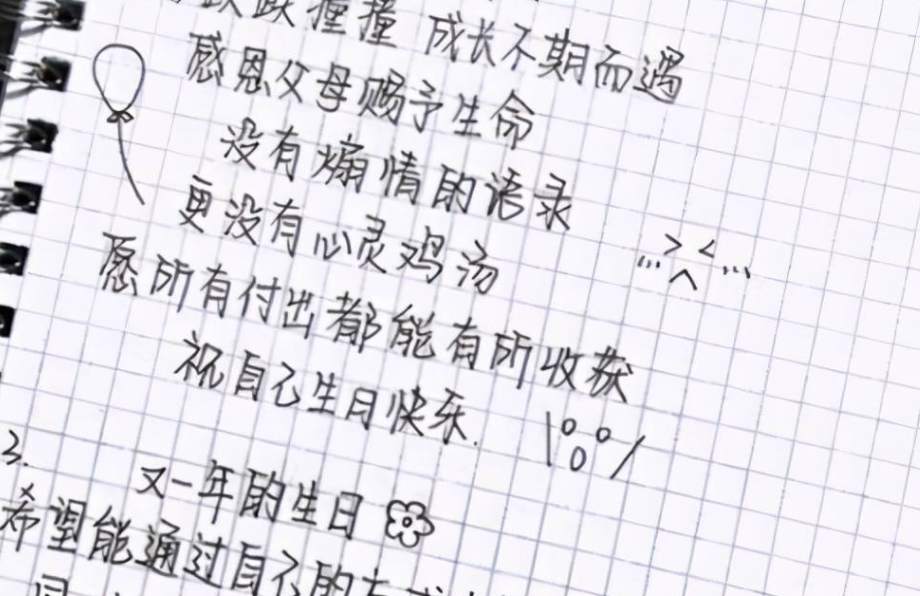 跌跌撞撞 成长不期而遇
感恩父母赐予生命
没有煽情的语录
更没有心灵鸡汤
愿所有付出都能有所收获
祝自己生日快乐.
3.
又一年的生日
希望能通过自己的方式